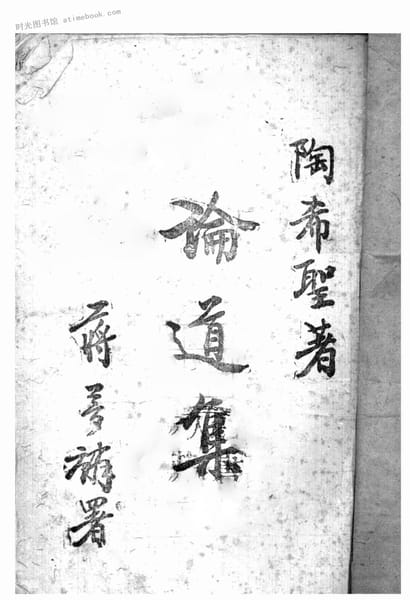 时光图书馆 atimebook.com
陶希聖著
論道集
蔣署